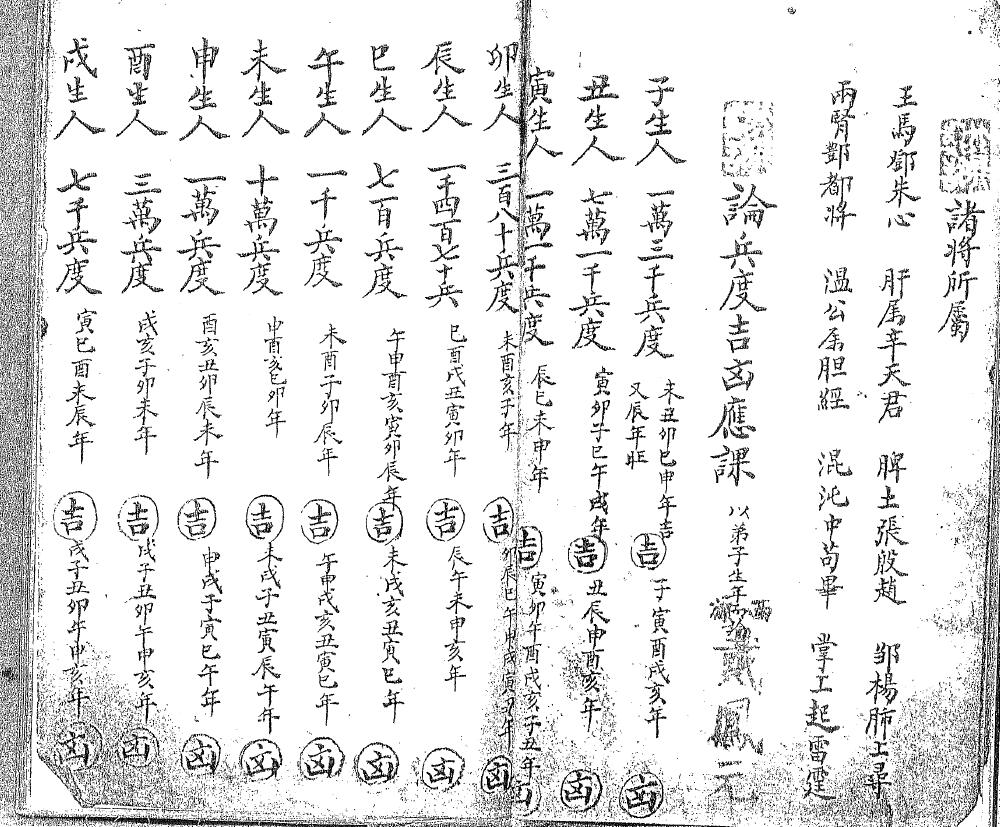 諸將所屬
王馬鄧朱心 肝属辛天君 脾土張殷趙 邹楊肺上尋
兩腎酆都将 溫公属胆經 混沌中苟畢 掌上起雷霆
論兵度吉凶應課 以弟子生年
子生人 一萬三千兵度 未丑卯巳申年吉 又辰年旺 吉 子寅酉戌亥年 凶
丑生人 七萬一千兵度 寅卯子巳午戌年 吉 丑辰申酉亥年 凶
寅生人 一萬一千兵度 辰巳未申年 吉 寅卯午酉戌亥子丑年 凶
卯生人 三百八十兵度 未酉亥子年 吉 卯辰巳午申戌寅丑年 凶
辰生人 一千四百七十兵 巳酉戌丑寅卯年 吉 辰午未申亥年 凶
巳生人 七百兵度 午申酉亥寅卯辰年 吉 未戌亥丑寅巳年 凶
午生人 一千兵度 未酉子卯辰年 吉 午申戌亥丑寅巳年 凶
未生人 十萬兵度 申酉亥巳卯年 吉 未戌子丑寅辰午年 凶
申生人 一萬兵度 酉亥丑卯辰未年 吉 申戌子寅巳午年 凶
酉生人 三萬兵度 戌亥子卯未年 吉 戌子丑卯午申亥年 凶
戌生人 七千兵度 寅巳酉未辰年 吉 戌子丑卯午申亥年 凶